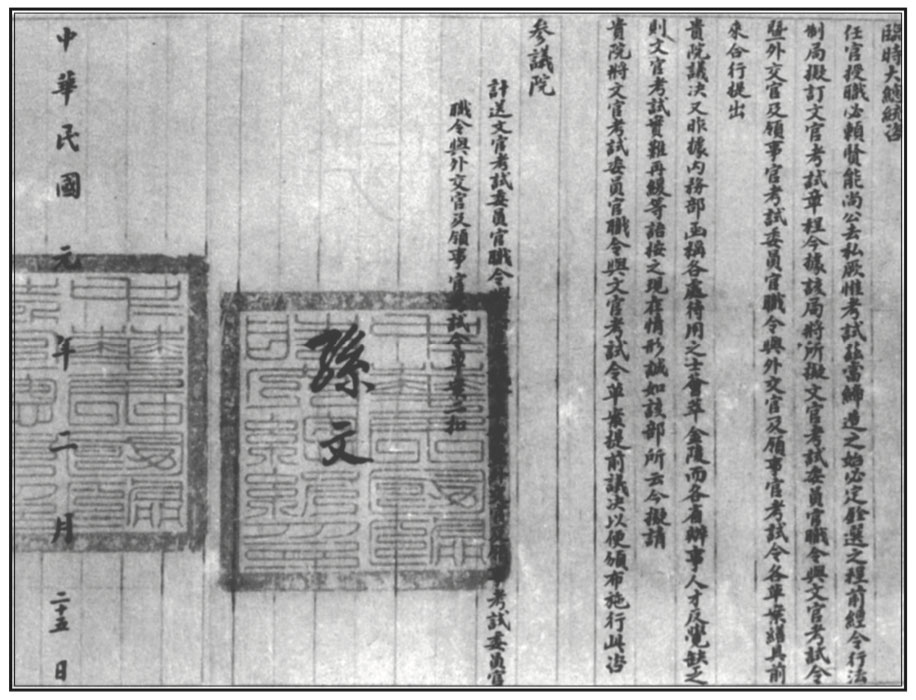 臨時大總統咨
任官授職必賴賢能尚公去私厥惟考試茲當締造之始必定銓選之程前經令行法
制局擬訂文官考試章程今據該局將所擬文官考試委員官職令與文官考試令
暨外交官及領事官考試委員官職令與外交官及領事官考試令各草案繕具前
來合行提出
貴院議决又昨據内務部函稱各處待用之士薈萃金陵而各省辦事人才反覺缺乏
則文官考試實難再緩等語按之現在情形誠如該部所云今擬請
貴院將文官考試委員官職令與文官考試令草案提前議决以便頒布施行此咨
參議院
計送文官考試委員官職令 外交官及領事 考試委員官
職令與外交官及領事官 試令草案二扣
孫文
中華民國元年二月二十五日